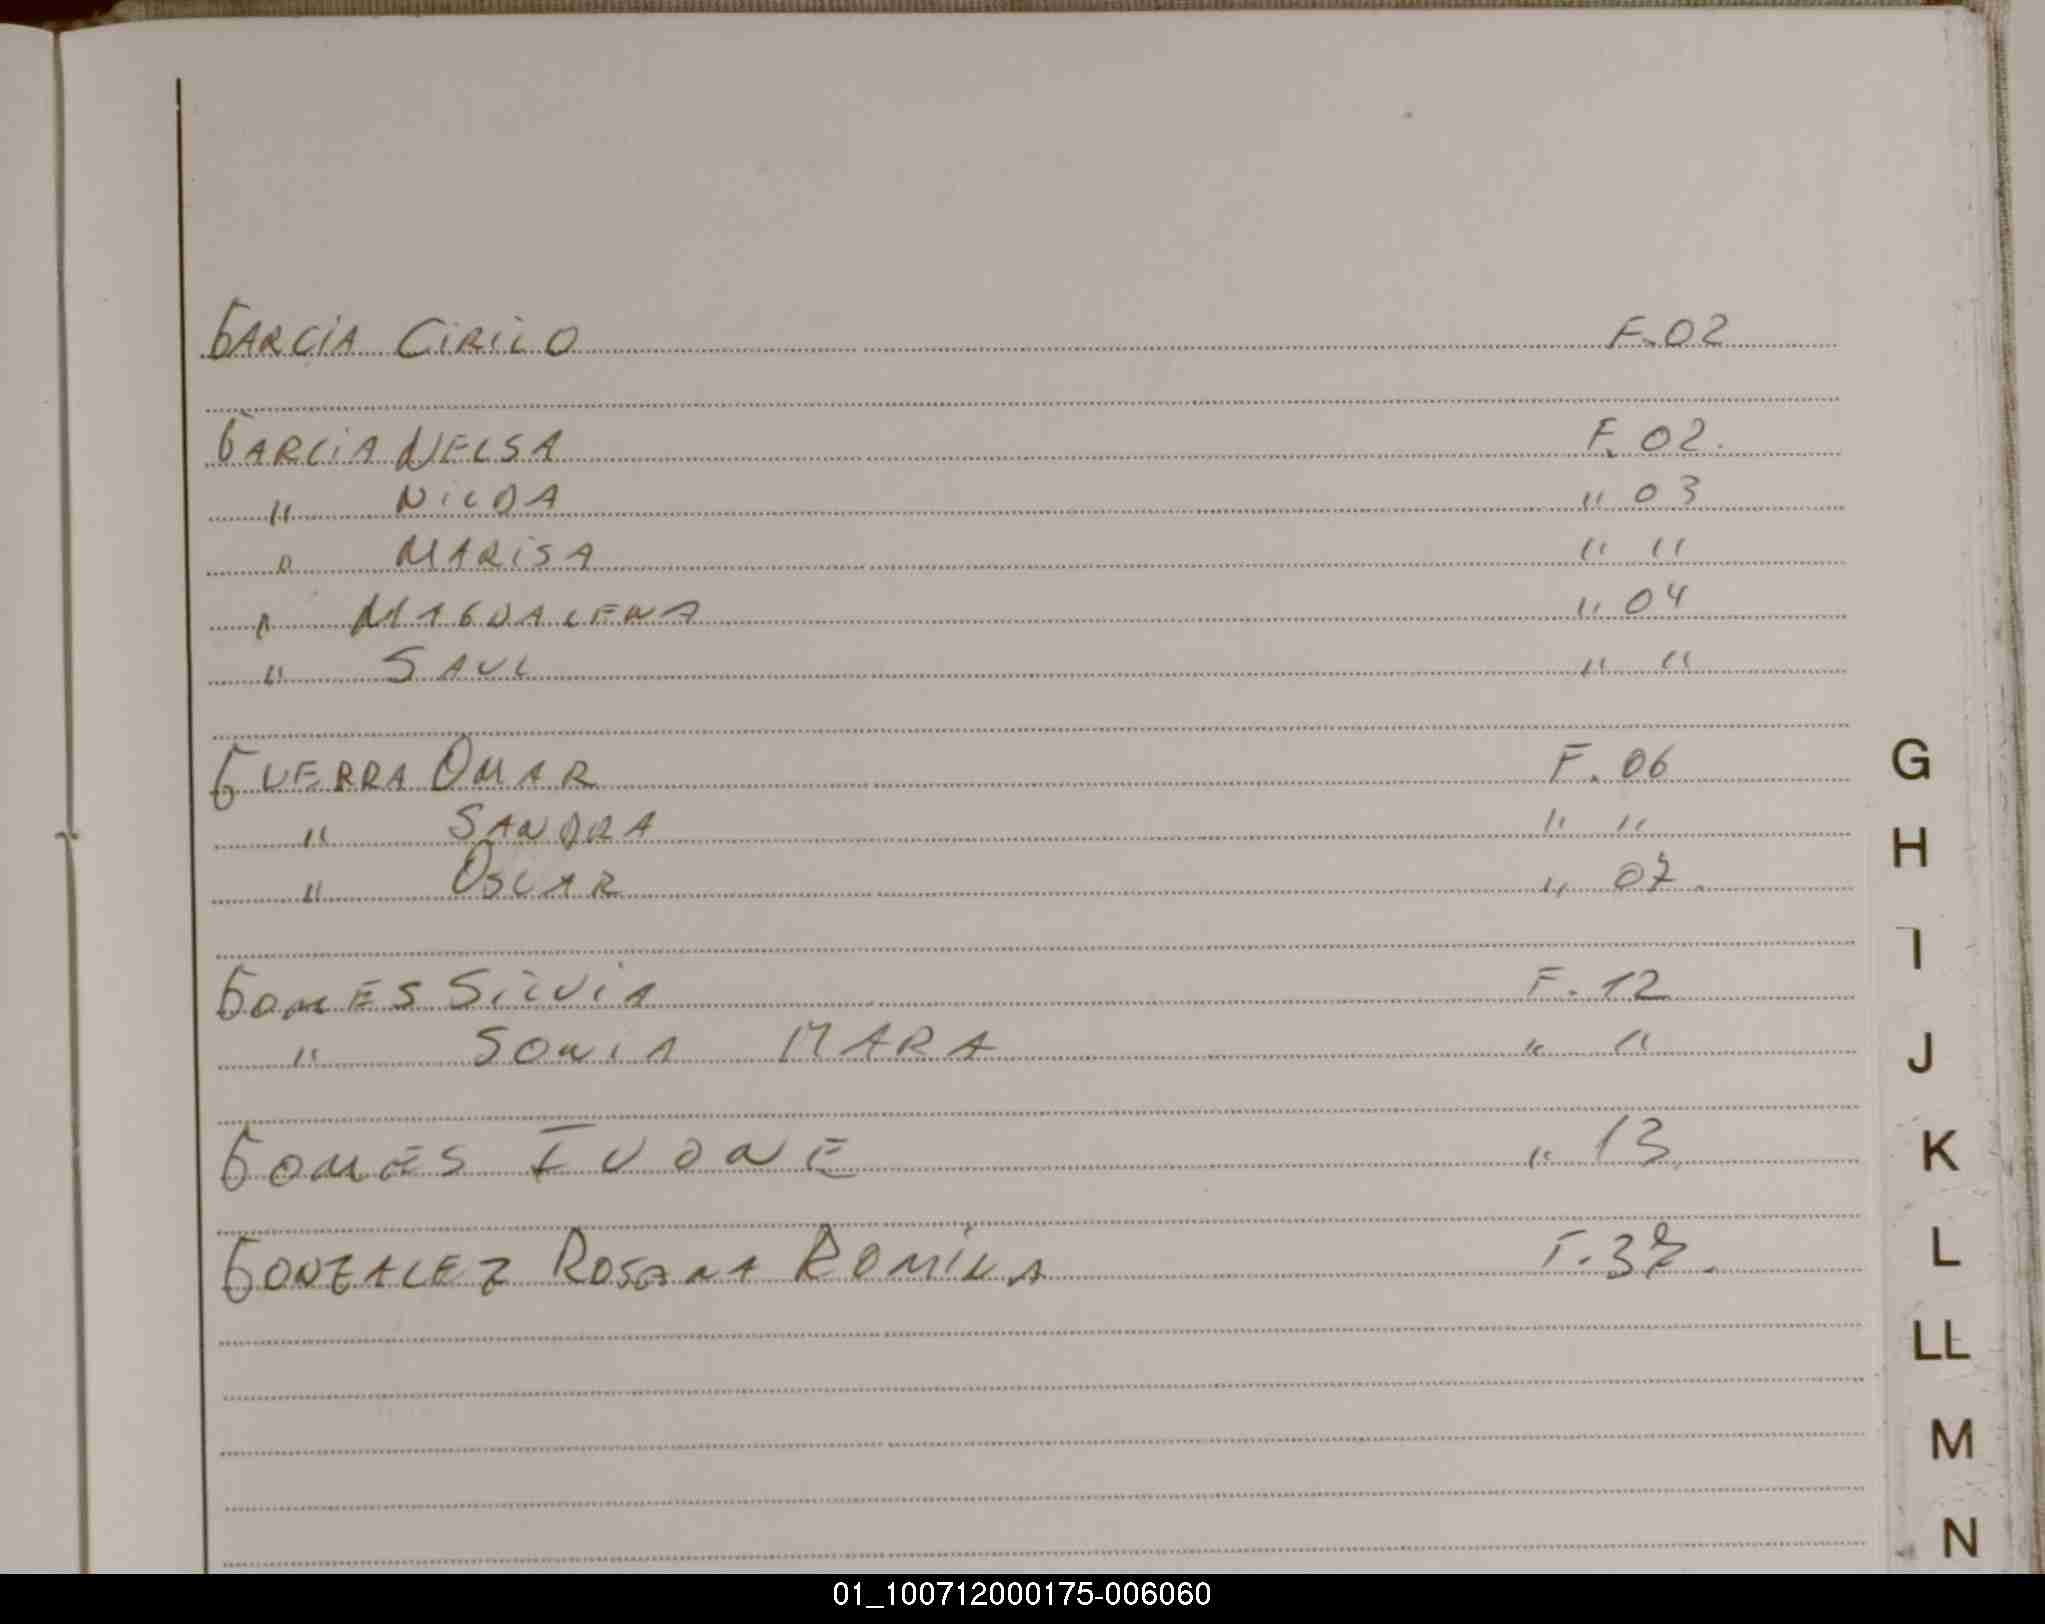 GARCIA CIRILO F.02
GARCIA NELSA F.02.
" NILDA " 03
" MARISA " "
" MAGDALENA " 04
" SAUL " "
GUERRA OMAR F.06
" SANDRA " "
" OSCAR " 07.
GOMES SILVIA F.12
" SONIA MARA " "
GOMES IVONE " 13
GONZALEZ ROSANA ROMINA F.37.
G
H
I
J
K
L
LL
M
N
01_100712000175-006060